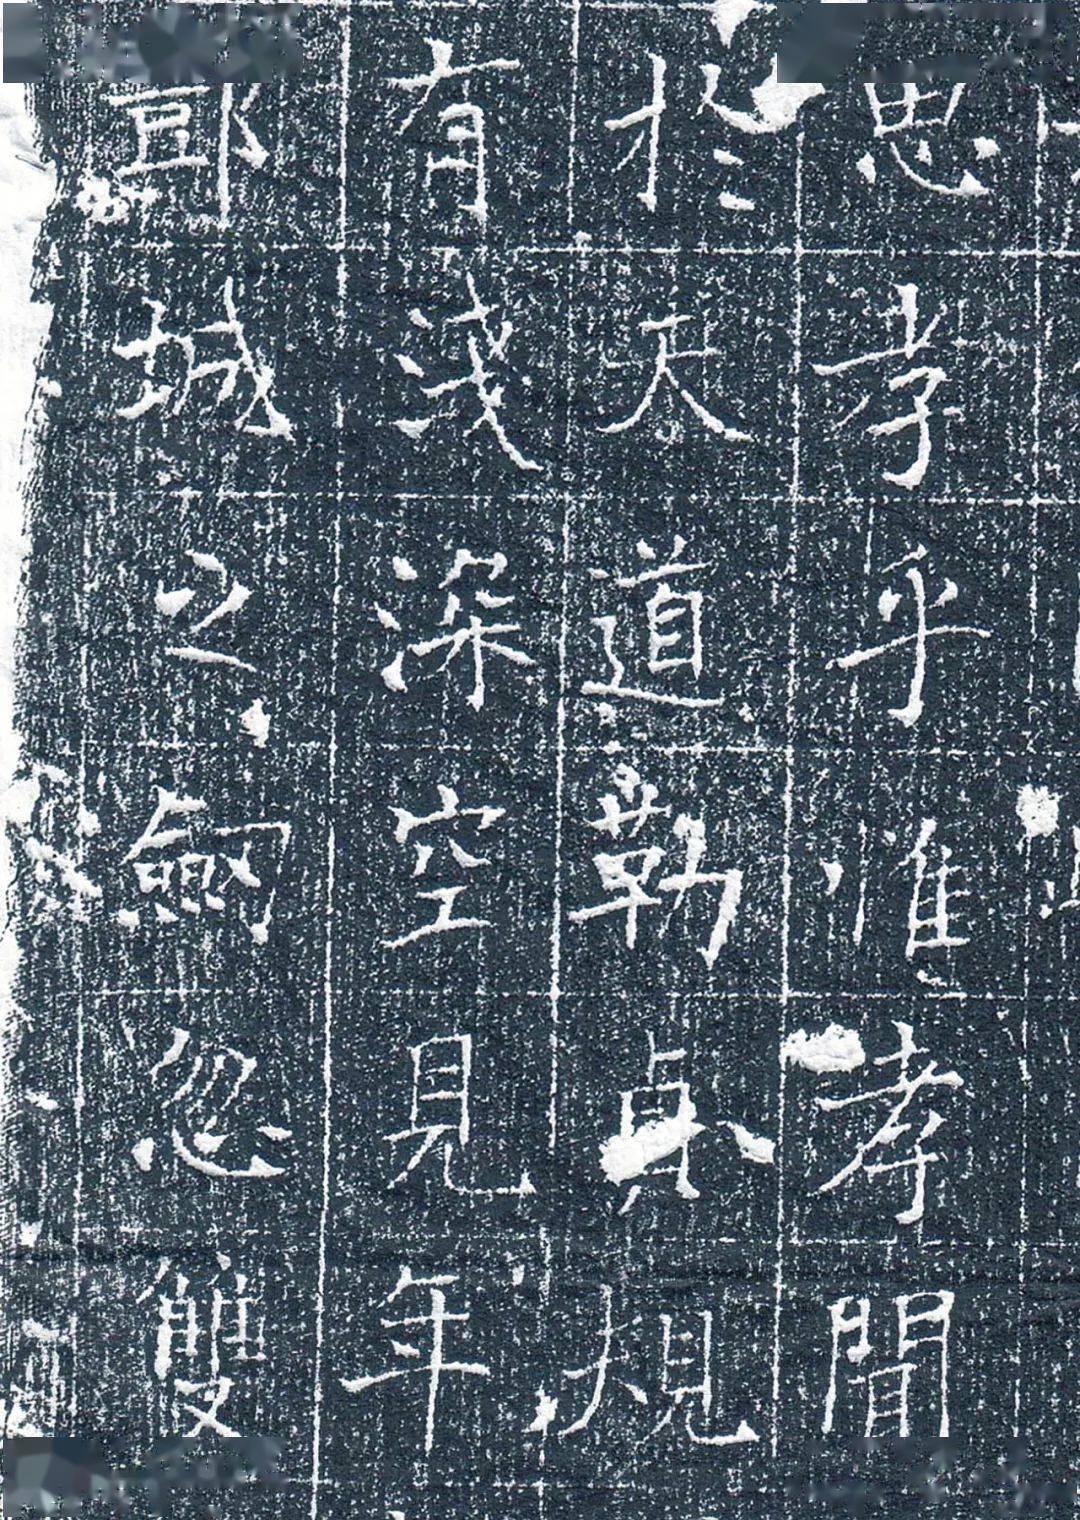 思孝乎惟孝聞
於天道勒貞規
有淺深空見年
酆城之劔忽雙